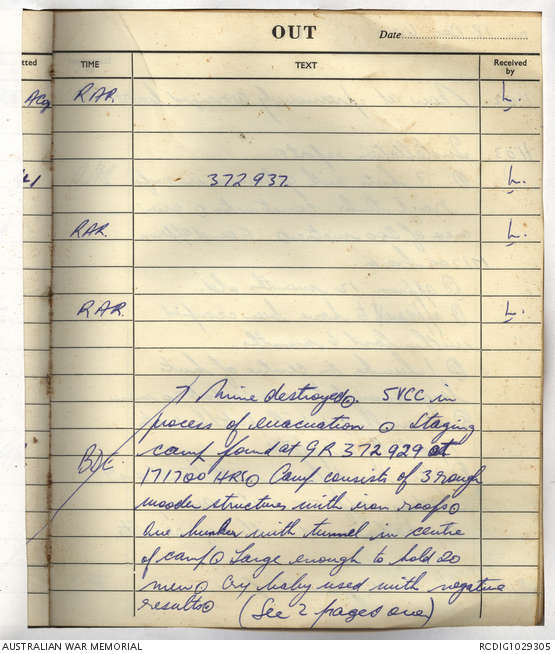 OUT
Date
tted
TIME
TEXT
Received by
ACq RAR. L.
372937. L.
RAR. L.
RAR. L.
Mine destroyed. 5VCC in
process of evacuation Staging
camp found at GR 372929 at
BDE. 171700 HRS Camp consists of 3 rough
wooden structures with iron roofs
One bunker with tunnel in centre
of camp Large enough to hold 20
men Cry baby used with negative
results (See 2 pages one)
AUSTRALIAN WAR MEMORIAL
RCDIG1029305